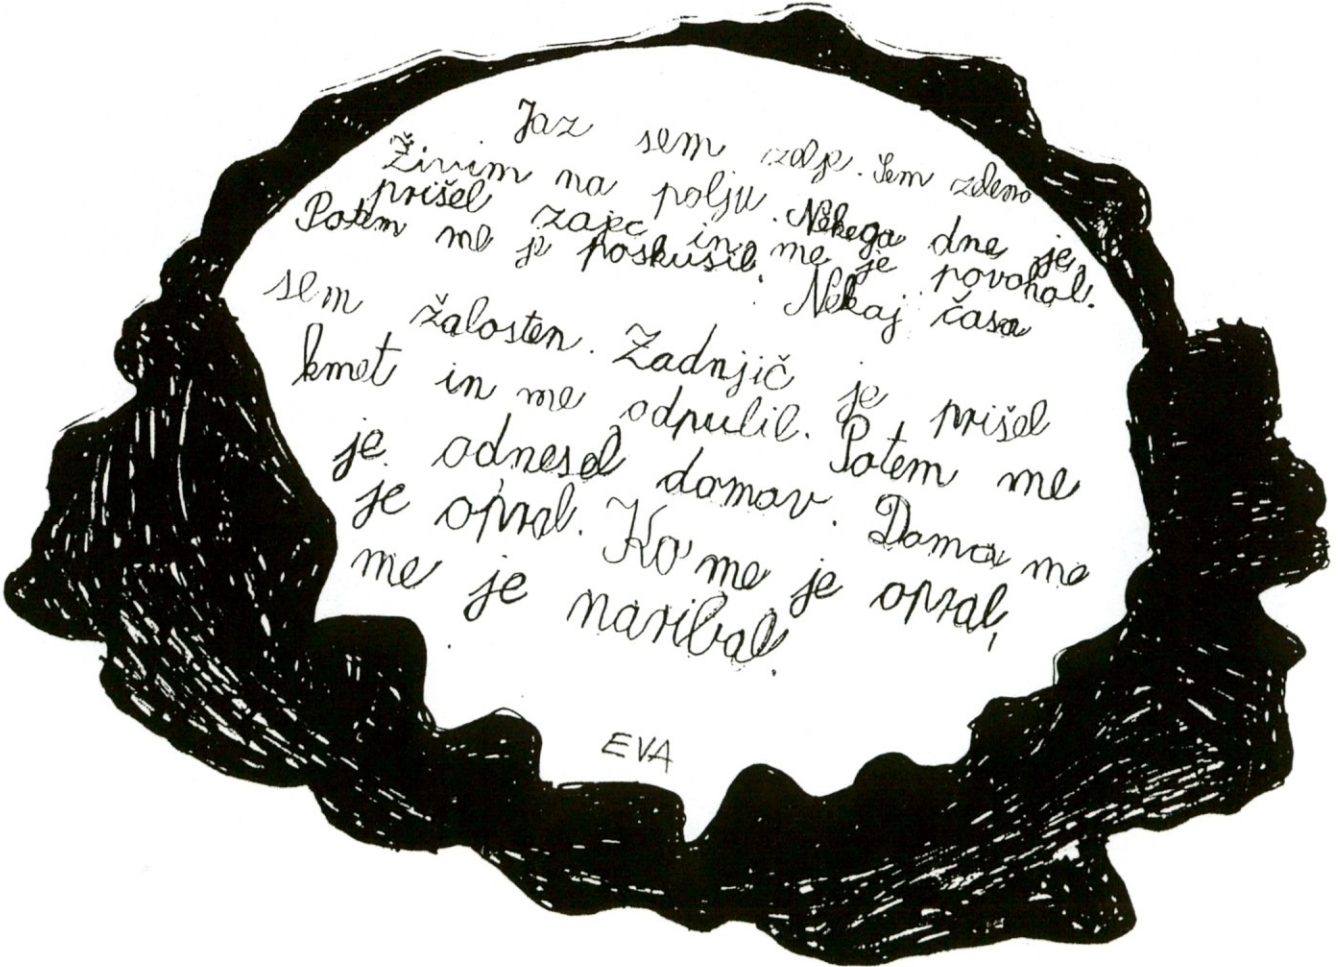 Jaz sem zelje. Sem zeleno
Živim na polju. Nekega dne je
prišel zajec in me je povohal.
Potem me je poskusil. Nekaj časa
sem žalosten. Zadnjič je prišel
kmet in me odpulil. Potem me
je odnesel domov. Doma me
je opral. Ko me je opral,
me je naribal.
EVA